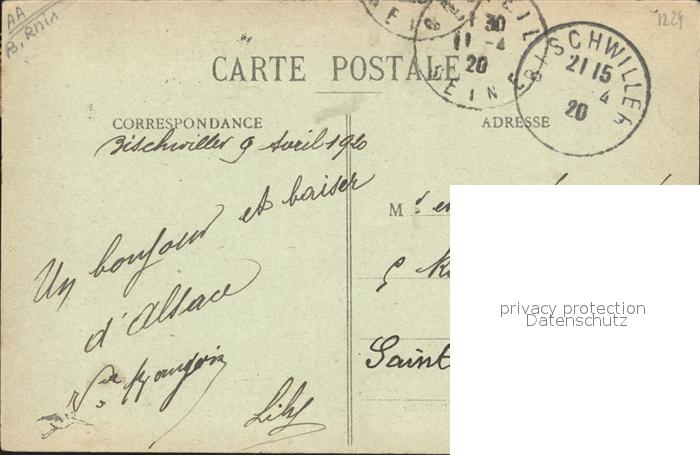 AA
B. Rhin
1229
EIL
30
11 -4
20
SEINE
BISCHWILLER
21 15
4
20
CARTE POSTALE
CORRESPONDANCE
ADRESSE
Bischwiller 9 Avril 1920
Un bonjour et baiser
d'Alsace
Lily
M
Saint
privacy protection
Datenschutz